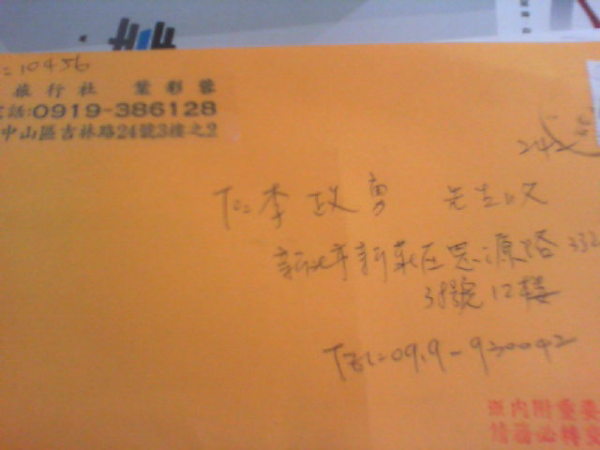 10456
旅行社 葉彩蓉
電話:0919-386128
中山區吉林路24號3樓之2
242
To: 李政勇 先生收
新北市新莊區思源路332
38號12樓
TEL: 0919-930042
※內附重要
請務必轉交